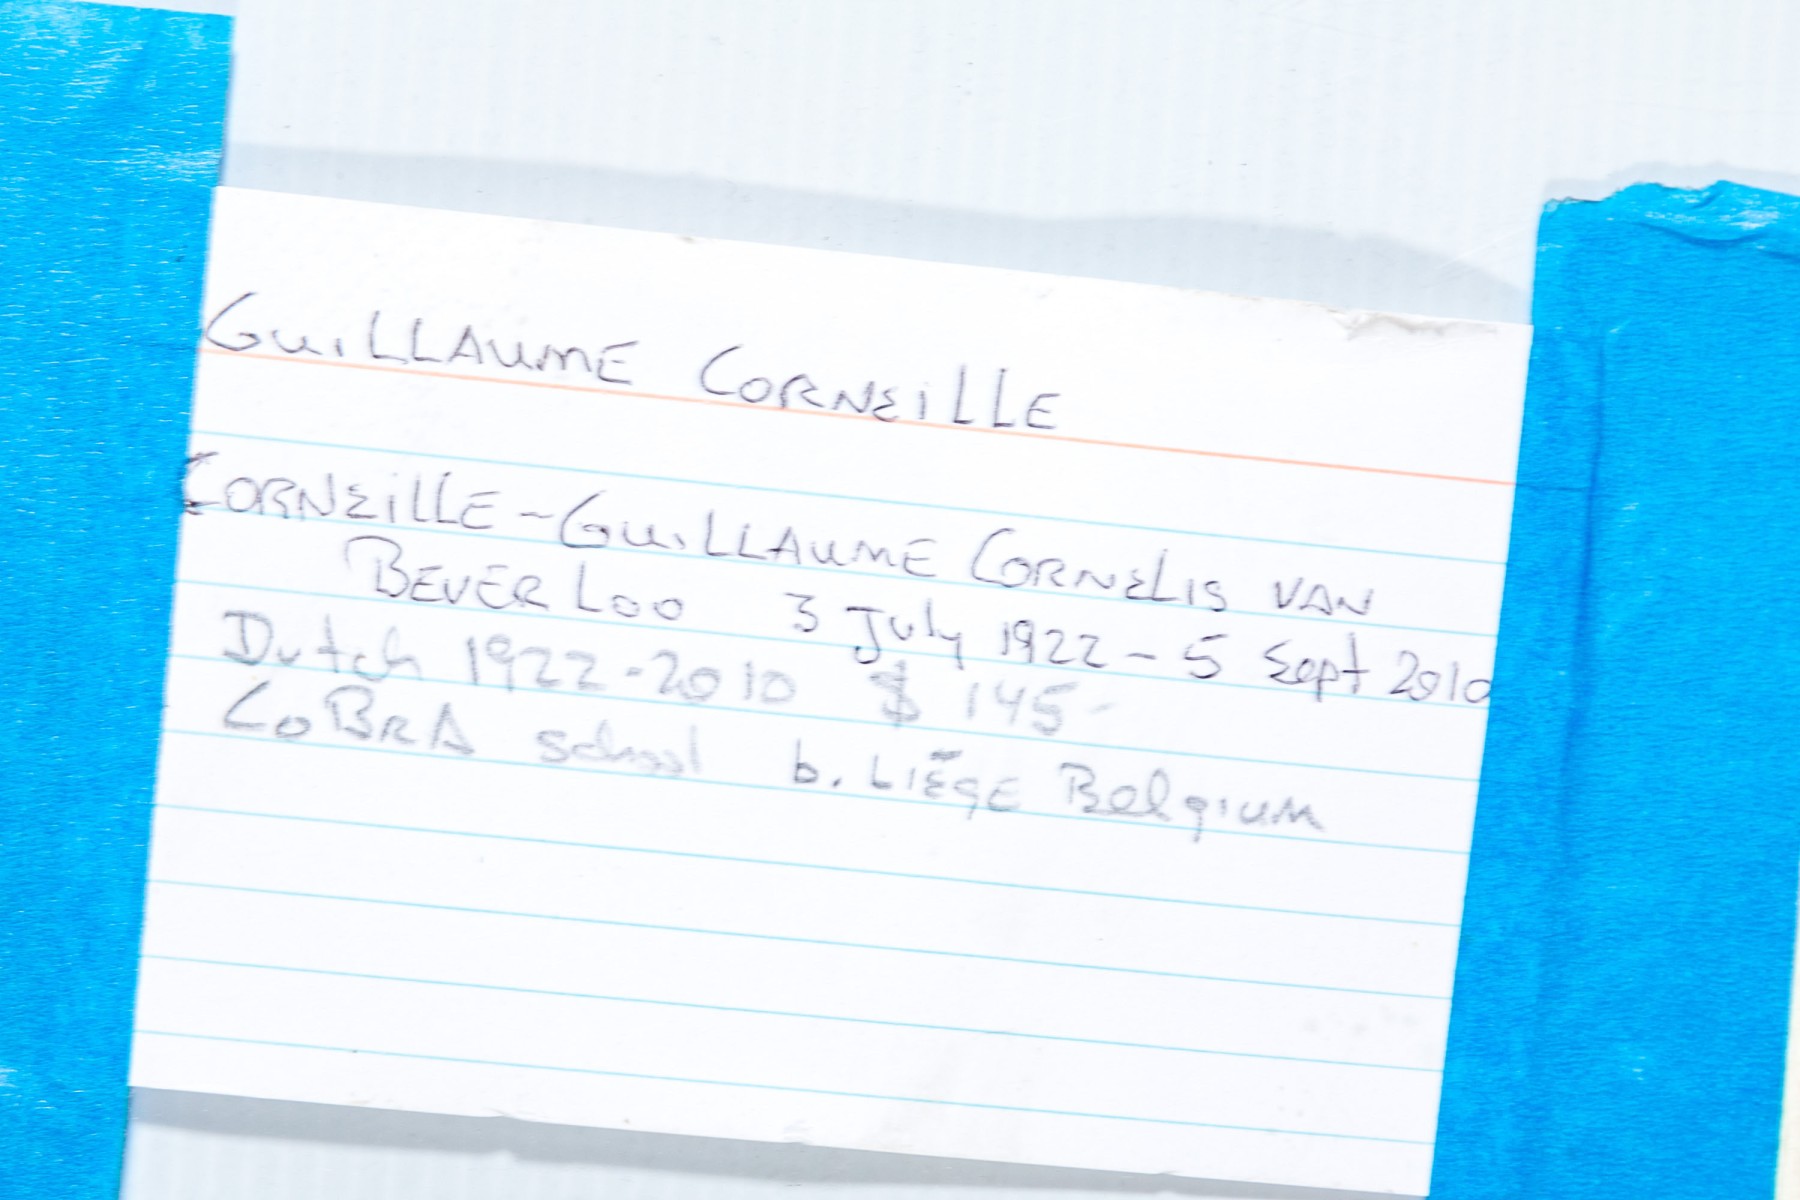 GuiLLAUME CORNEiLLE
CORNEiLLE - GuiLLAUME CORNELIS VAN
BEVER Loo 3 July 1922 - 5 Sept 2010
Dutch 1922-2010 $ 145-
CoBRA school b. LIĒGE Belgium